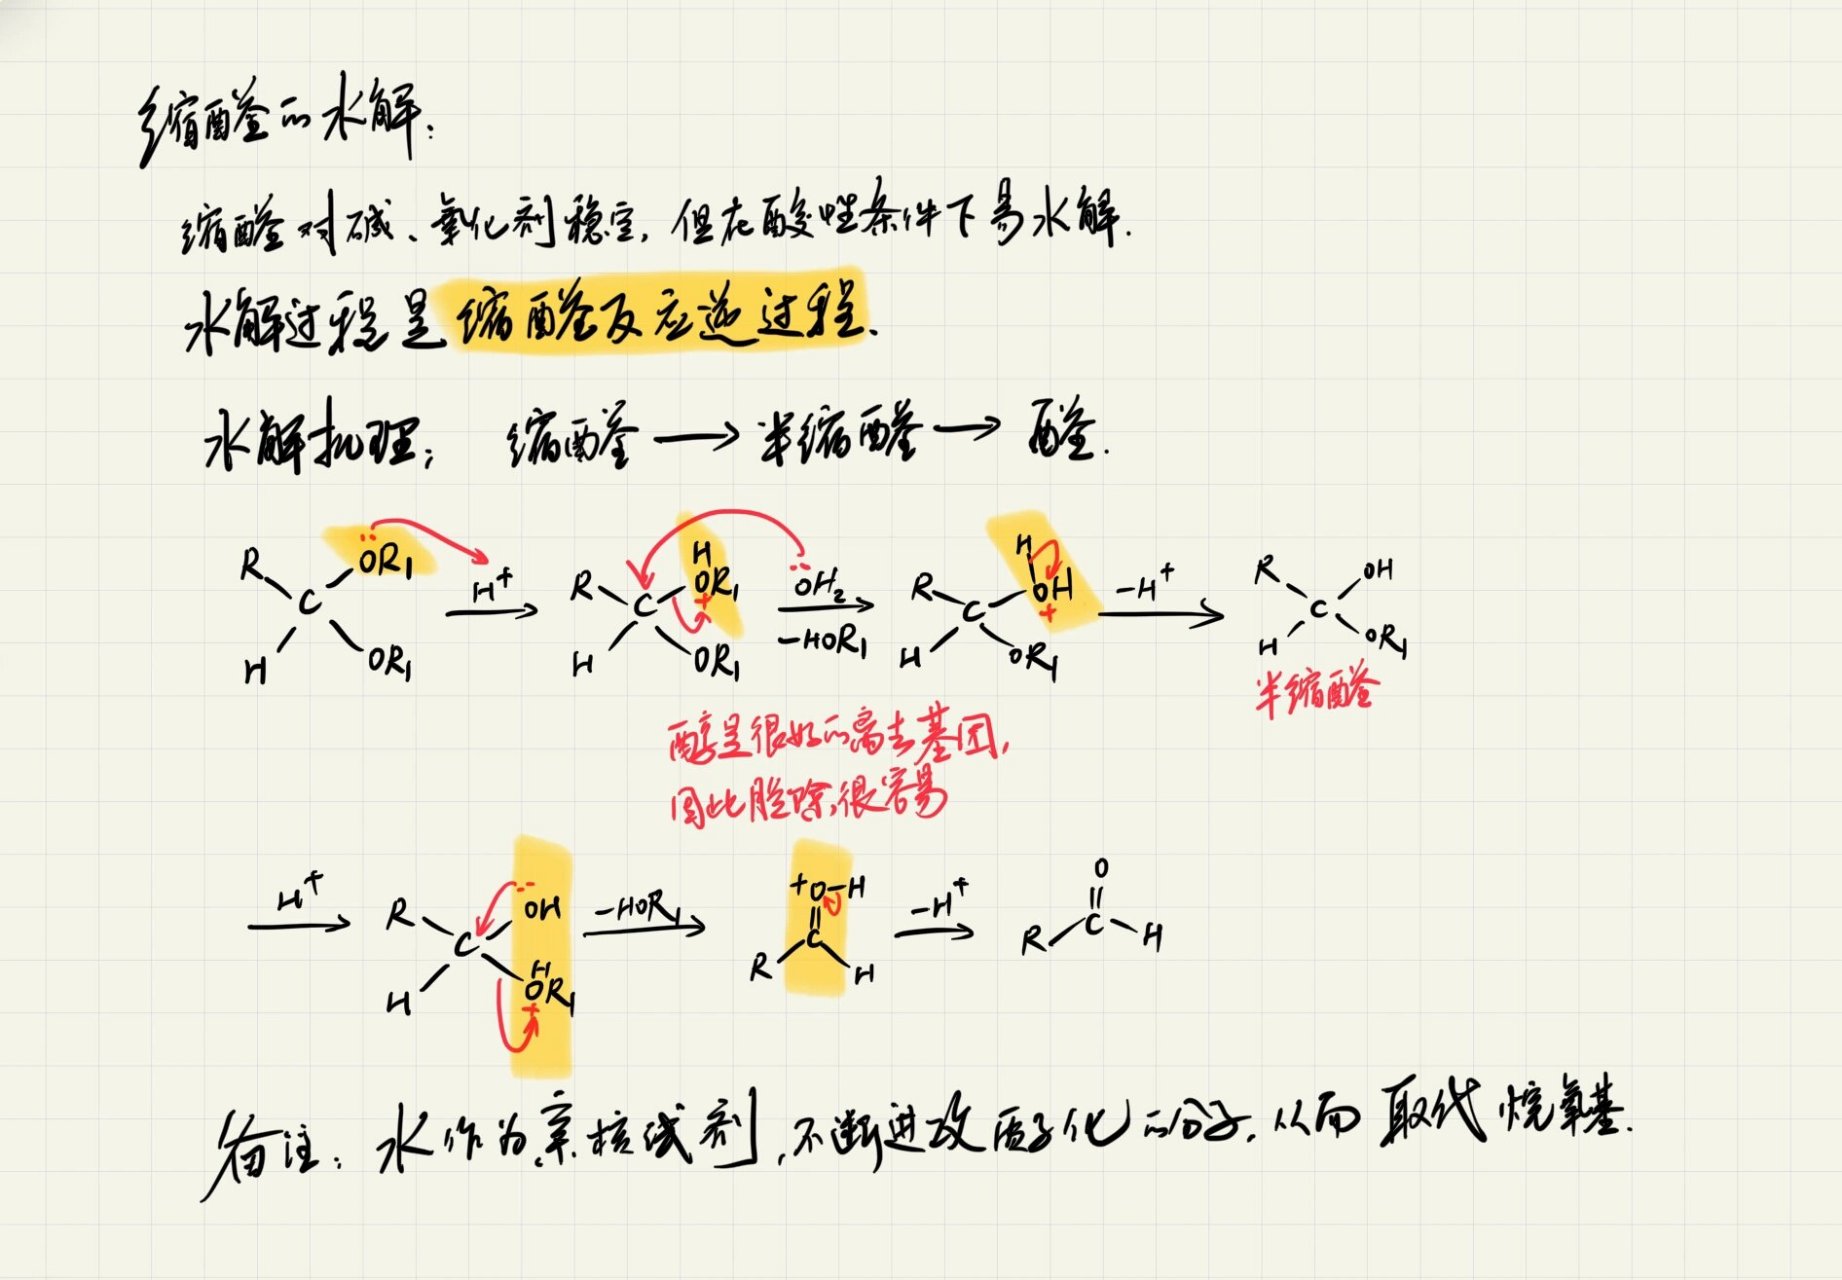 缩醛的水解:
缩醛对碱、氧化剂稳定,但在酸性条件下易水解.
水解过程是缩醛反应逆过程.
水解机理: 缩醛 → 半缩醛 → 醛.
R C H OR₁ OR₁ H⁺ R C H H OR₁ + OR₁ OH₂ -HOR₁ R C H H OH + OR₁ -H⁺ R C H OH OR₁
半缩醛
醇是很好的离去基团,
因此脱除很容易
H⁺ R C H OH H OR₁ + -HOR₁ + O-H C R H -H⁺ O C R H
备注: 水作为亲核试剂,不断进攻质子化的分子,从而取代烷氧基.